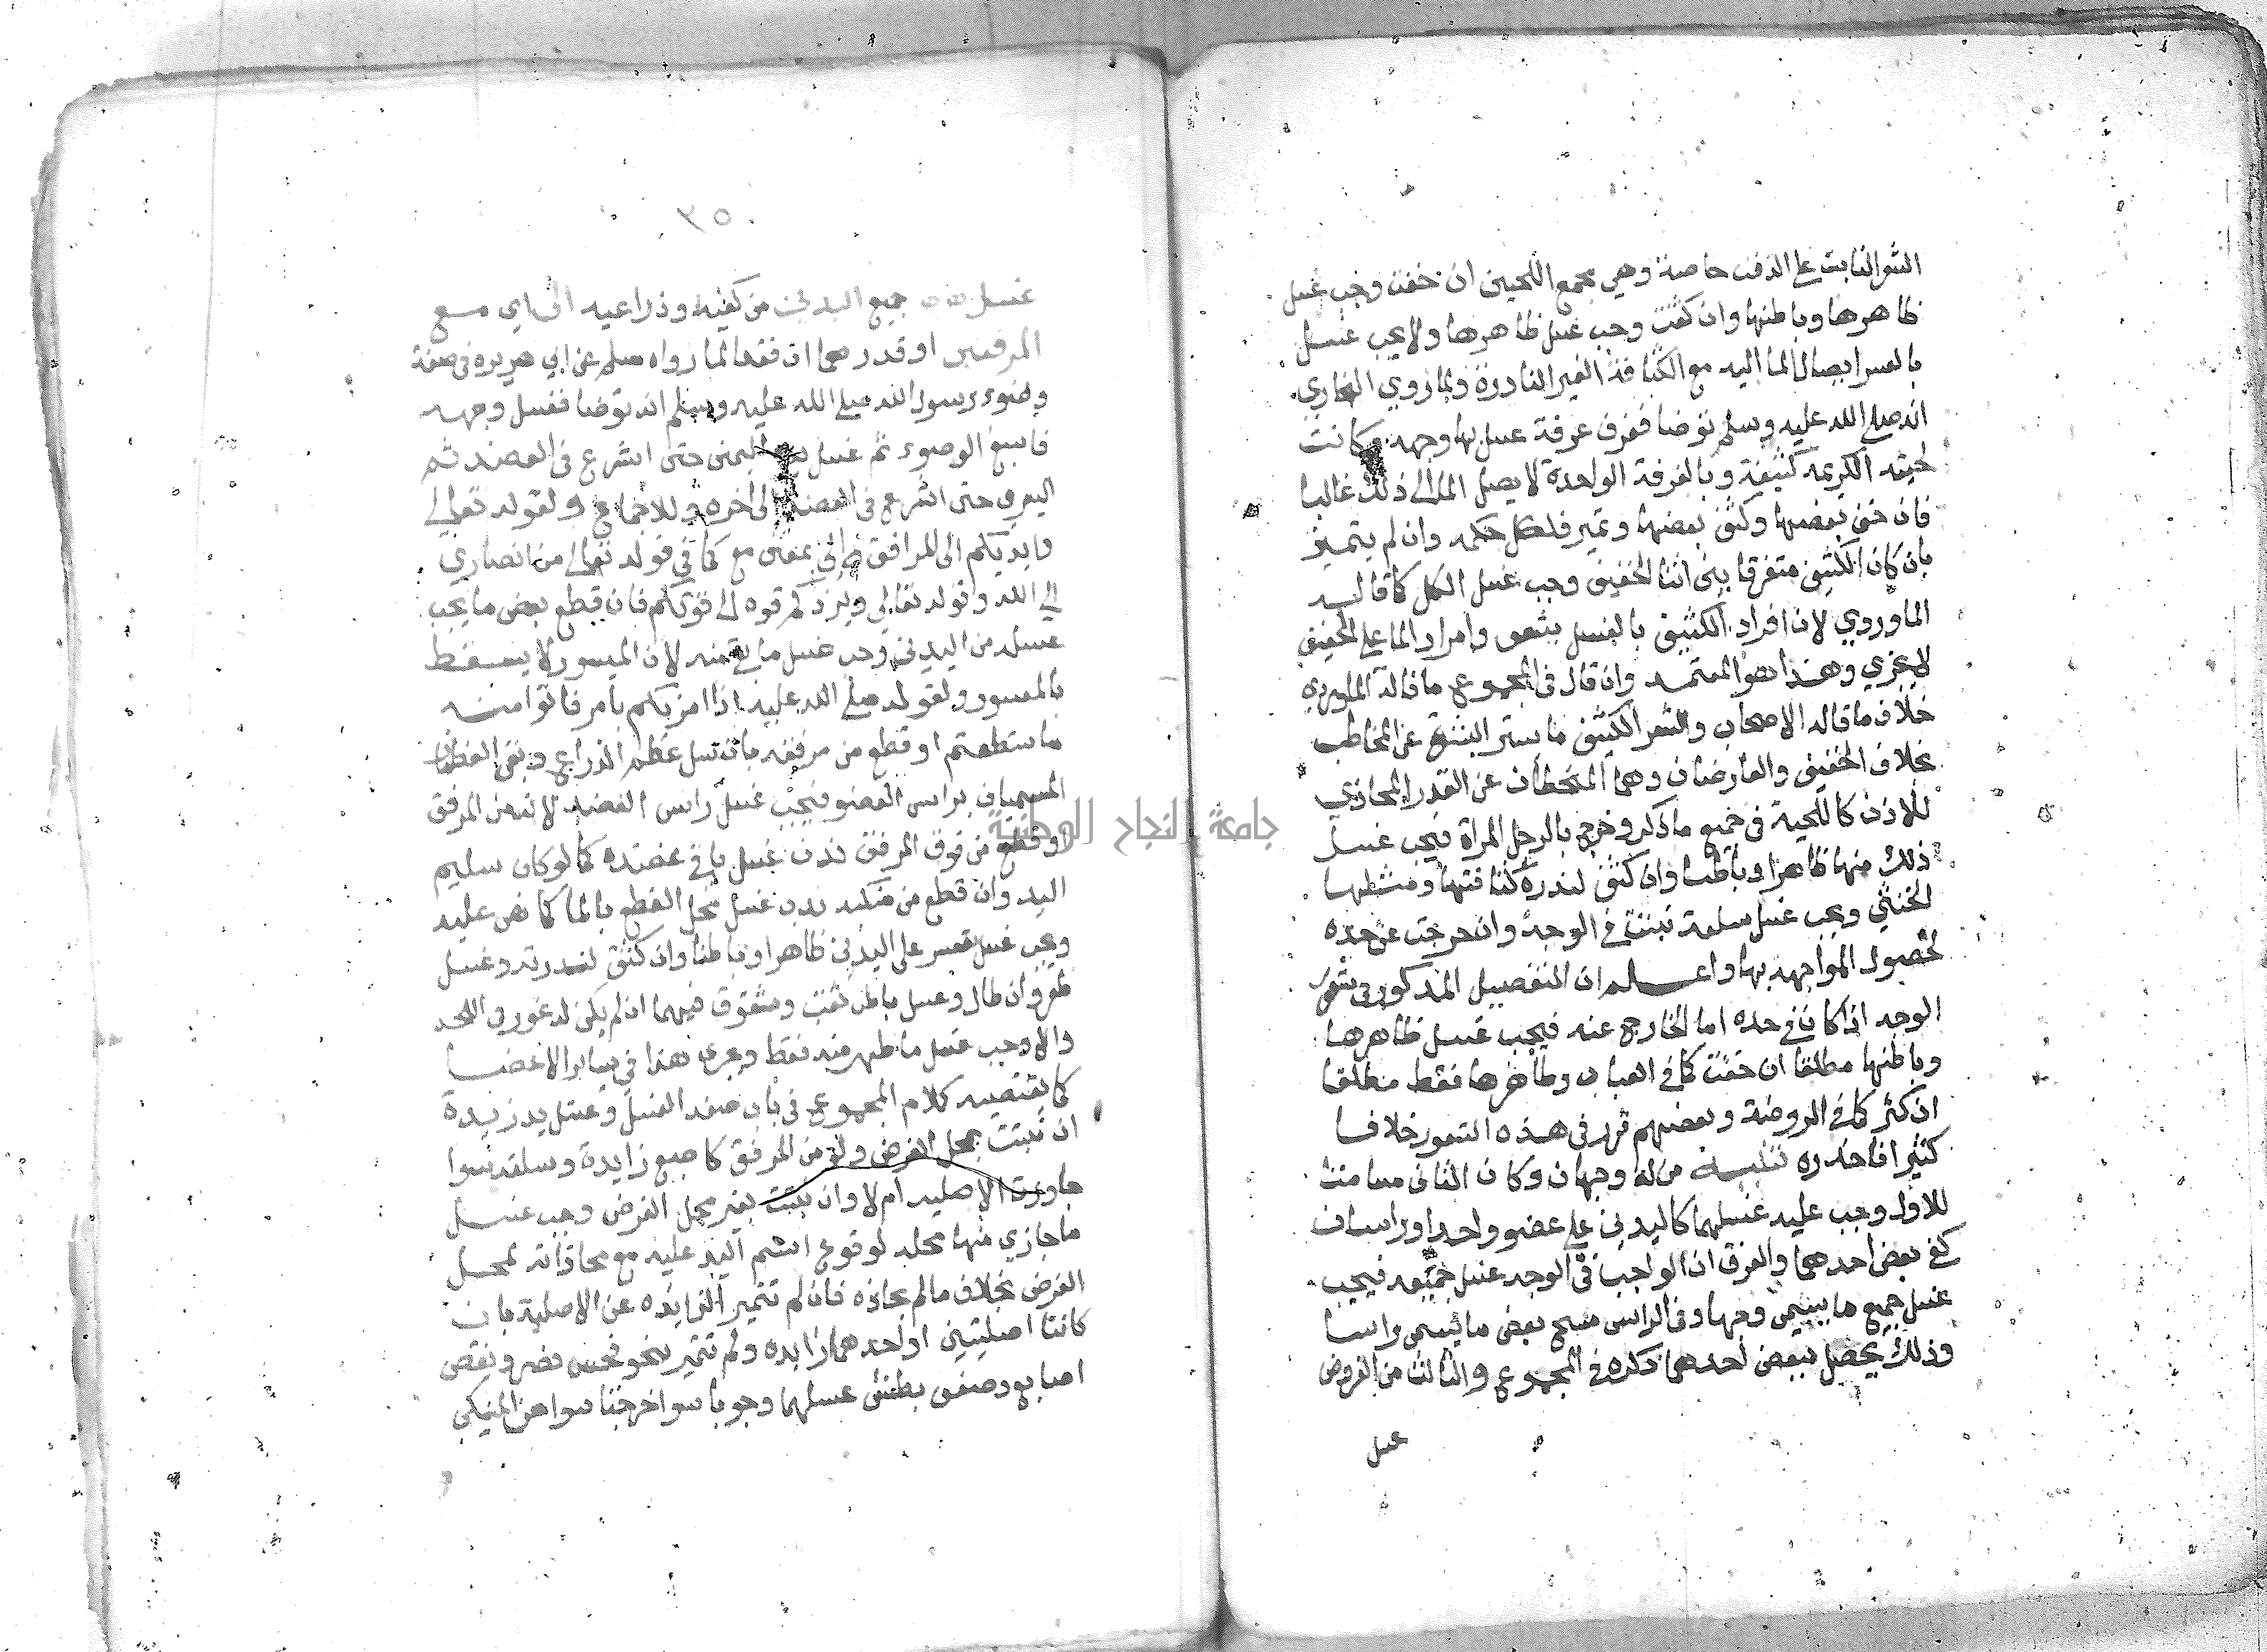 الشعر النابت على الذقن خاصة وهي مجمع اللحيين ان خفت وجب غسل
ظاهرها وباطنها وان كثفت وجب غسل ظاهرها ولا يجب غسل
بالعسر ايصال الما اليه مع الكثافة الغير النادرة ولما روي البخاري
انه صلى الله عليه وسلم توضا فغرف غرفة غسل بها وجهه وكانت
لحيته الكريمه كثيفة وبالغرفة الواحدة لا يصل الما الى ذلك غالبا
فان خف بعضها وكثف بعضها وتميز فلكل حكمه وان لم يتميز
بان كان الكثيف متفرقا بين اثنا الخفيف وجب غسل الكل كما قاله
الماوردي لان افراد الكثيف بالغسل يشق وامرار الما على الخفيف
لا يجزي وهذا هو المعتمد وان قال في المجموع ما قاله الماوردي
خلاف ما قاله الاصحاب والشعر الكثيف ما يستر البشرة عن المخاطب
بخلاف الخفيف والعارضان وهما المنحطان عن القدر المحاذي
للاذن كاللحية في جميع ما ذكر وخرج بالرجل المراة فيجب غسل
ذلك منها ظاهرا وباطنا وان كثف لندرة كثافتها ومثلها
الخنثي ويجب غسل سلعة نبتت في الوجه وان خرجت عن حده
لحصول المواجهه بها واعلم ان التفصيل المذكور في شعر
الوجه اذا كان في حده اما الخارج عنه فيجب غسل ظاهرها
وباطنها مطلقا ان خفت كما في العباب وظاهرها فقط مطلقا
ان كثر كما في الروضة وبعضهم قرر في هذه الشعور خلافا
كثيرا فاحذره تنبيه من له وجهان وكان الثاني مسامتا
للاول وجب عليه غسلهما كاليدين على عضو واحد او راسان
كفى بعض احدهما والفرق ان الواجب في الوجه غسل جميعه فيجب
غسل جميع ما يسمى وجها وفي الراس مسح بعض ما يسمى راسا
وذلك يحصل ببعض احدهما ذكره في المجموع والثالث من الفروض
غسل
٣٥
غسل جميع اليدين من كفيه وذراعيه الى اي مع
المرفقين او قدرهما ان فقدا لما رواه مسلم عن ابي هريره في صفة
وضوء رسول الله صلى الله عليه وسلم انه توضا فغسل وجهه
فاسبغ الوضوء ثم غسل يده اليمنى حتى اشرع في العضد ثم
اليسرى حتى اشرع في العضد الى اخره وللاجماع ولقوله تعالى
وايديكم الى المرافق والى بمعنى مع كما في قوله تعالى من انصاري
الى الله وقوله تعالى ويزدكم قوه الى قوتكم فان قطع بعض ما يجب
غسله من اليدين وجب غسل ما بقي منه لان الميسور لا يسقط
بالمعسور ولقوله صلى الله عليه اذا امرتكم بامر فاتوا منه
ما استطعتم او قطع من مرفقه بان سل عظم الذراع وبقي العظمان
المسميان براس العضو فيجب غسل راس العضد لانه من المرفق
او قطع من فوق المرفق ندب غسل باقي عضده كما لو كان سليم
اليد وان قطع من منكبه ندب غسل محل القطع بالما كما نص عليه
ويجب غسل شعر على اليدين ظاهرا وباطنا وان كثف لندرته وغسل
ظفر وان طال وغسل باطن ثقب وشقوق فيهما ان لم يكن له غور في اللحم
والا وجب غسل ما ظهر منه فقط ويجري هذا في ساير الاعضا
كما يقتضيه كلام المجموع في باب صفه الغسل وغسل يد زيدة
ان نبتت بمحل الفرض ولو من المرفق كاصبع زايدة وسلعه سوا
جاوزت الاصليه ام لا وان نبتت بغير محل الفرض وجب غسل
ما حازي منها محله لوقوع اسم اليد عليه مع محاذاته لمحل
الفرض بخلاف ما لم يحاذه فان لم تتميز الزايده عن الاصلية بان
كانتا اصليتين او احدهما زايده ولم تتميز بنحو فحش قصر ونقص
اصابع وضعف بطش غسلهما وجوبا سوا خرجتا سوا من المنكب
جامعة النجاح الوطنية